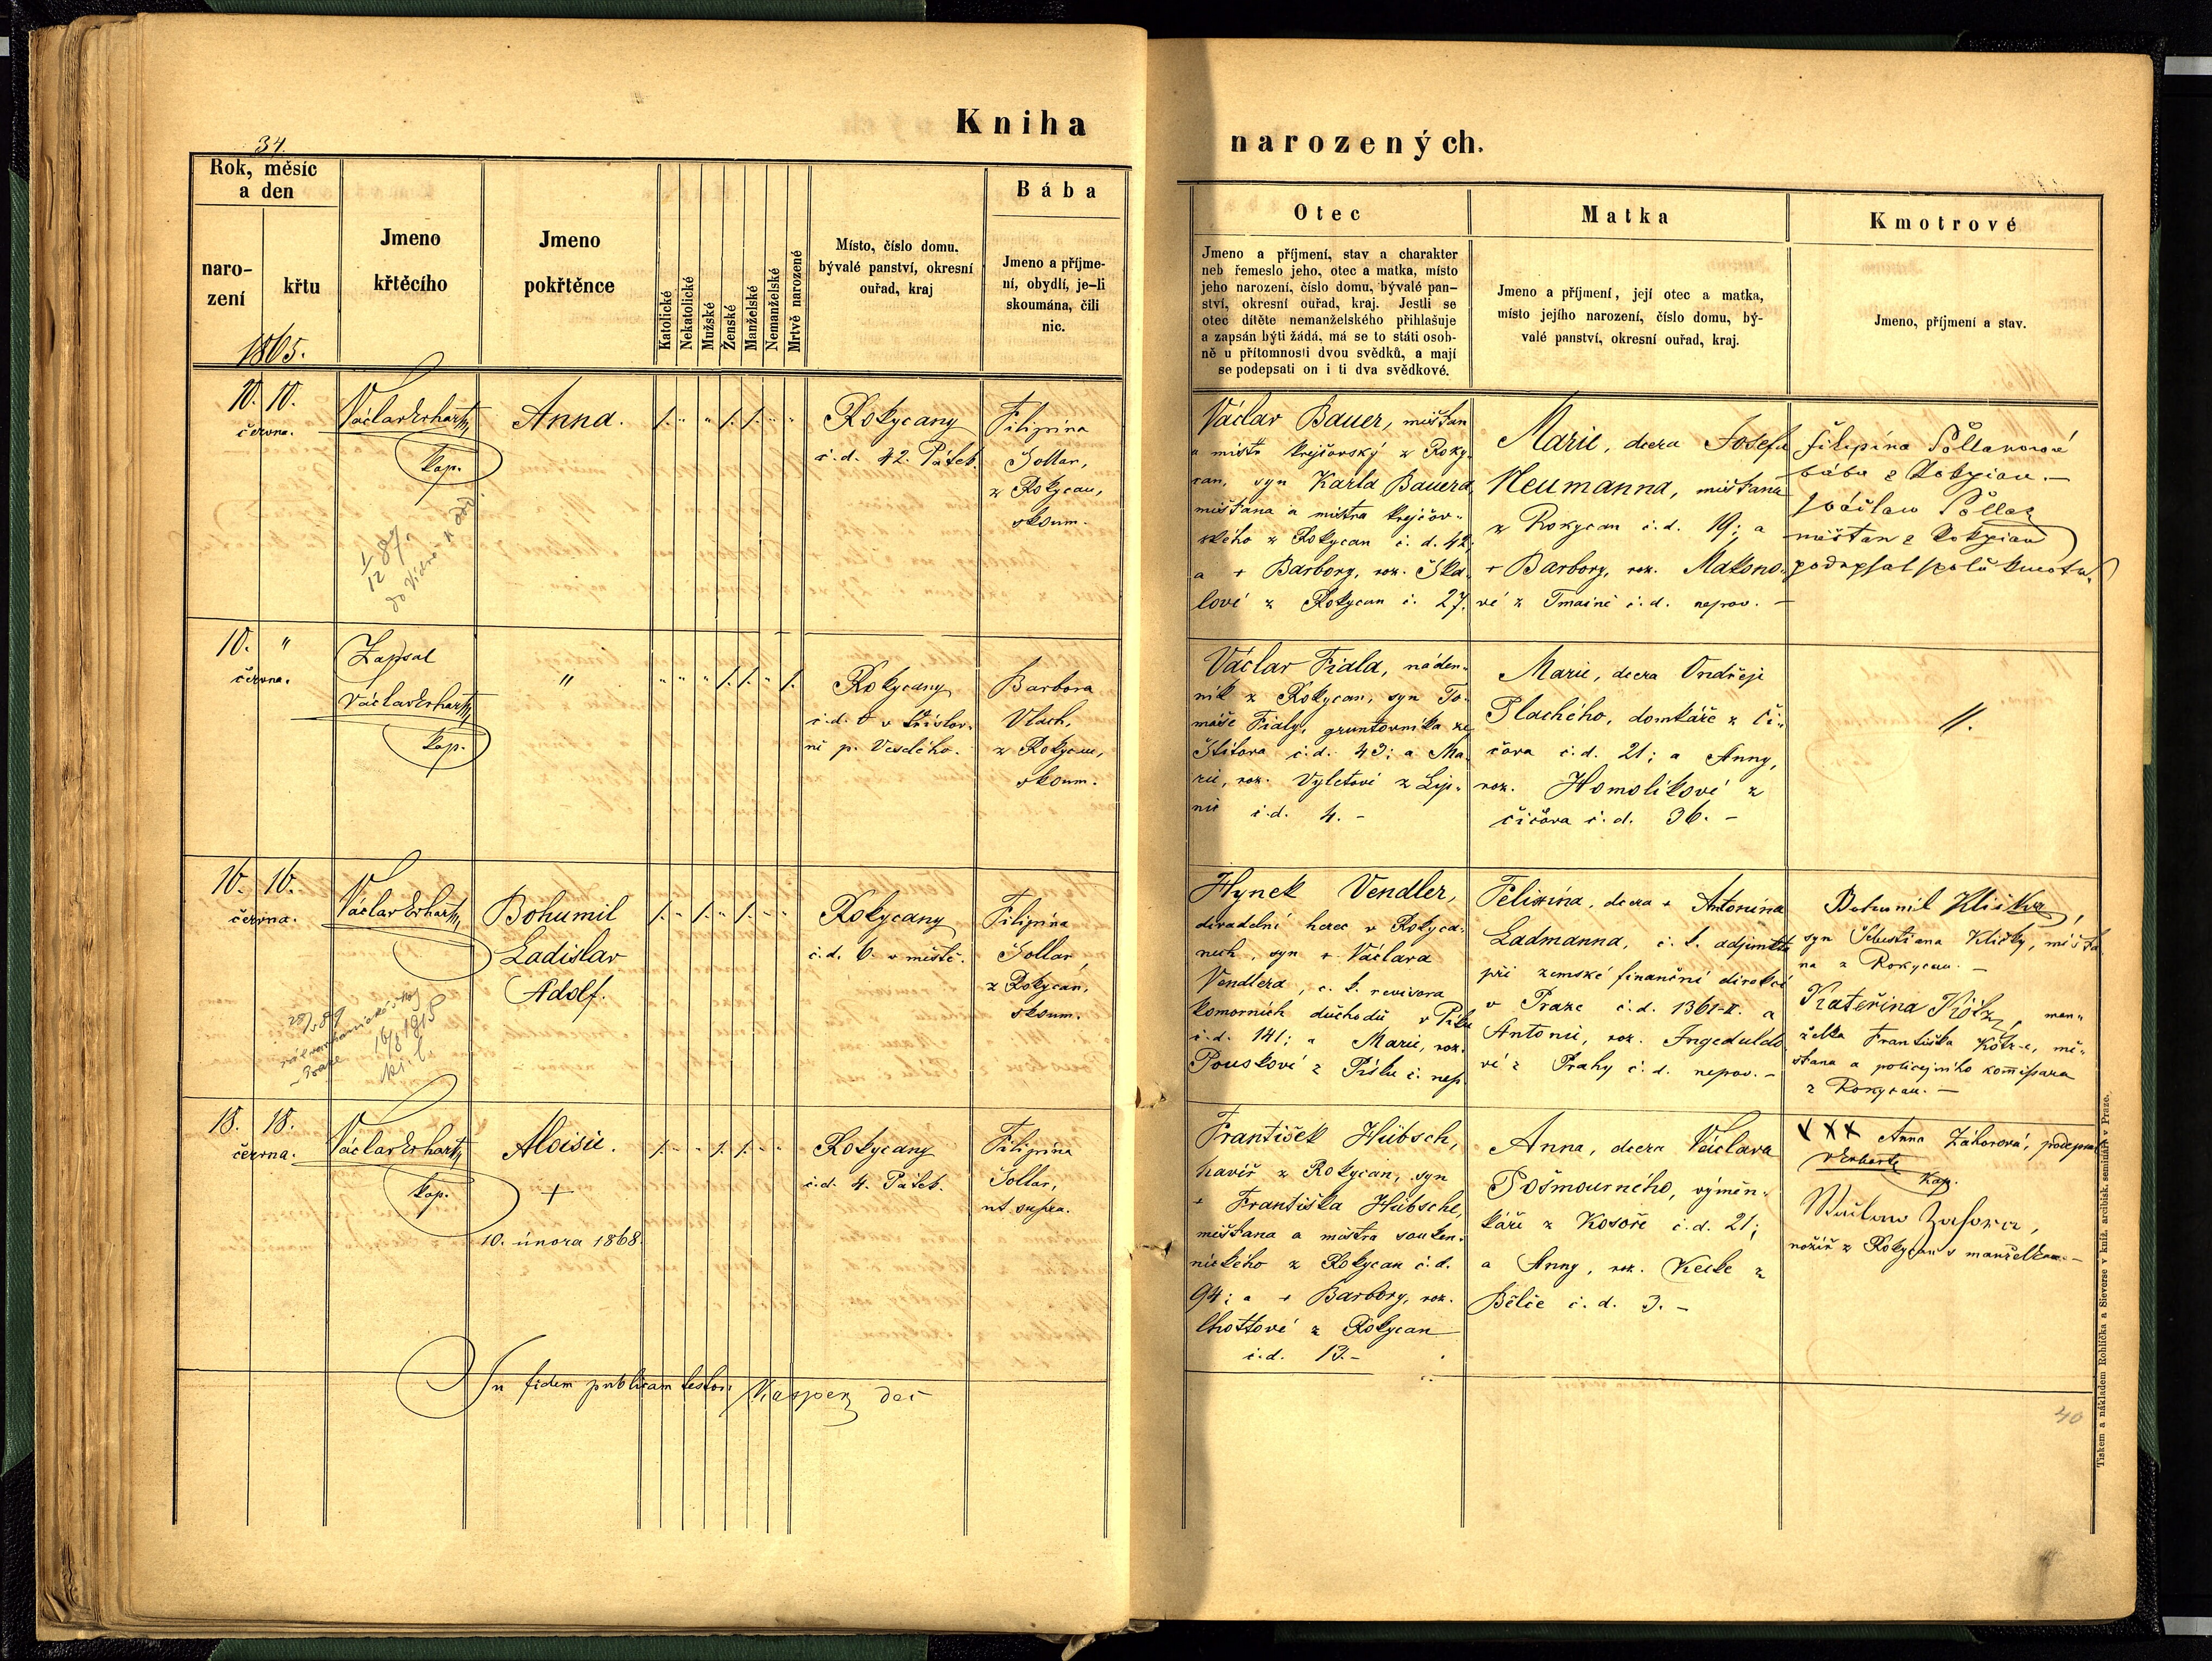 Kniha narozených.
34.
Rok, měsíc
a den
naro-
zení
křtu
1865.
Jmeno
křtěcího
Jmeno
pokřtěnce
Katolické
Nekatolické
Mužské
Ženské
Manželské
Nemanželské
Mrtvě narozené
Místo, číslo domu,
bývalé panství, okresní
ouřad, kraj
Bába
Jmeno a příjme-
ní, obydlí, je-li
skoumána, čili
nic.
Otec
Jmeno a příjmení, stav a charakter
neb řemeslo jeho, otec a matka, místo
jeho narození, číslo domu, bývalé pan-
ství, okresní ouřad, kraj. Jestli se
otec dítěte nemanželského přihlašuje
a zapsán býti žádá, má se to státi osob-
ně u přítomnosti dvou svědků, a mají
se podepsati on i ti dva svědkové.
Matka
Jmeno a příjmení, její otec a matka,
místo jejího narození, číslo domu, bý-
valé panství, okresní ouřad, kraj.
Kmotrové
Jmeno, příjmení a stav.
10. 10.
června.
Václav Erhart,
kap.
Anna.
1. " " 1. 1. " "
Rokycany
č.d. 42. Pátek.
Filipina
Sollar,
z Rokycan,
skoum.
Václav Bauer, měšťan
a mistr krejčovský z Roky-
can, syn Karla Bauera
měšťana a mistra krejčov-
ského z Rokycan č. d. 42;
a + Barbory, roz. Ška-
lové z Rokycan č. 27.
Marie, dcera Josefa
Neumanna, měšťana
z Rokycan č.d. 19; a
+ Barbory, roz. Makono-
vé z Tmaině č.d. nepov. -
bába z Rokycan. -
měšťan z Rokycan
10. "
června.
Zapsal
Václav Erhart,
kap.
"
" " " 1. 1. " 1.
Rokycany
č.d. 0 v
ně p. Veselého.
Barbora
Vlach,
z Rokycan,
skoum.
Václav Fiala, náden-
ník z Rokycan, syn To-
máše Fialy, gruntovníka ze
Štítova č.d. 43; a Ma-
rie, roz. Vyletové z Lip-
nic č.d. 4. -
Marie, dcera Ondřeje
Plachého, domkáře z Či-
čova č.d. 21; a Anny,
roz. Homolkové z
Čičova č.d. 36. -
//.
16. 16.
června.
Václav Erhart,
Bohumil
Ladislav
Adolf.
1. " 1. " 1. " "
Rokycany
č.d. 6. v městě.
Filipina
Sollar,
z Rokycan,
skoum.
Hynek Vendler,
divadelní herec v Rokyca-
nech, syn + Václava
Vendlera, c. k. revisora
komorních důchodů v Písku
č.d. 141; a Marie, roz.
Pouskové z Písku č. nep.
Felixina, dcera + Antonína
Ladmanna, c. k. adjunkta
při zemské finanční direkci
v Praze č.d. 1361-II. a
Antonie, roz. Ingeduldo-
vé z Prahy č. d. nepov. -
Bohumil Klička,
syn Šebestiana Kličky, měšťa-
na z Rokycan. -
Kateřina Kötz, man-
želka Františka Kötz-e, mě-
šťana a policejního komisara
z Rokycan. -
18. 18.
června.
Václav Erhart,
kap.
Aloisie.
+
10. února 1868.
1. " " 1. 1. " "
Rokycany
č.d. 4. Pátek.
Filipina
Sollar,
ut supra.
František Hübsch,
havíř z Rokycan, syn
+ Františka Hübsche,
měšťana a mistra souken-
nického z Rokycan č.d.
94; a + Barbory, roz.
Lhottové z Rokycan
č.d. 13. -
Anna, dcera Václava
Pošmourného, výměn-
káře z Kosoře č.d. 21;
a Anny, roz. Kecke z
Bělče č. d. 3. -
XXX Anna Záhorová, podepsal
V Erhart,
kap.
nožíř z Rokycan s manželkou. -
In fidem publicam testor:
40
Tiskem a nákladem Rohlíčka a Sieverse v kníž. arcibisk. semináři v Praze.